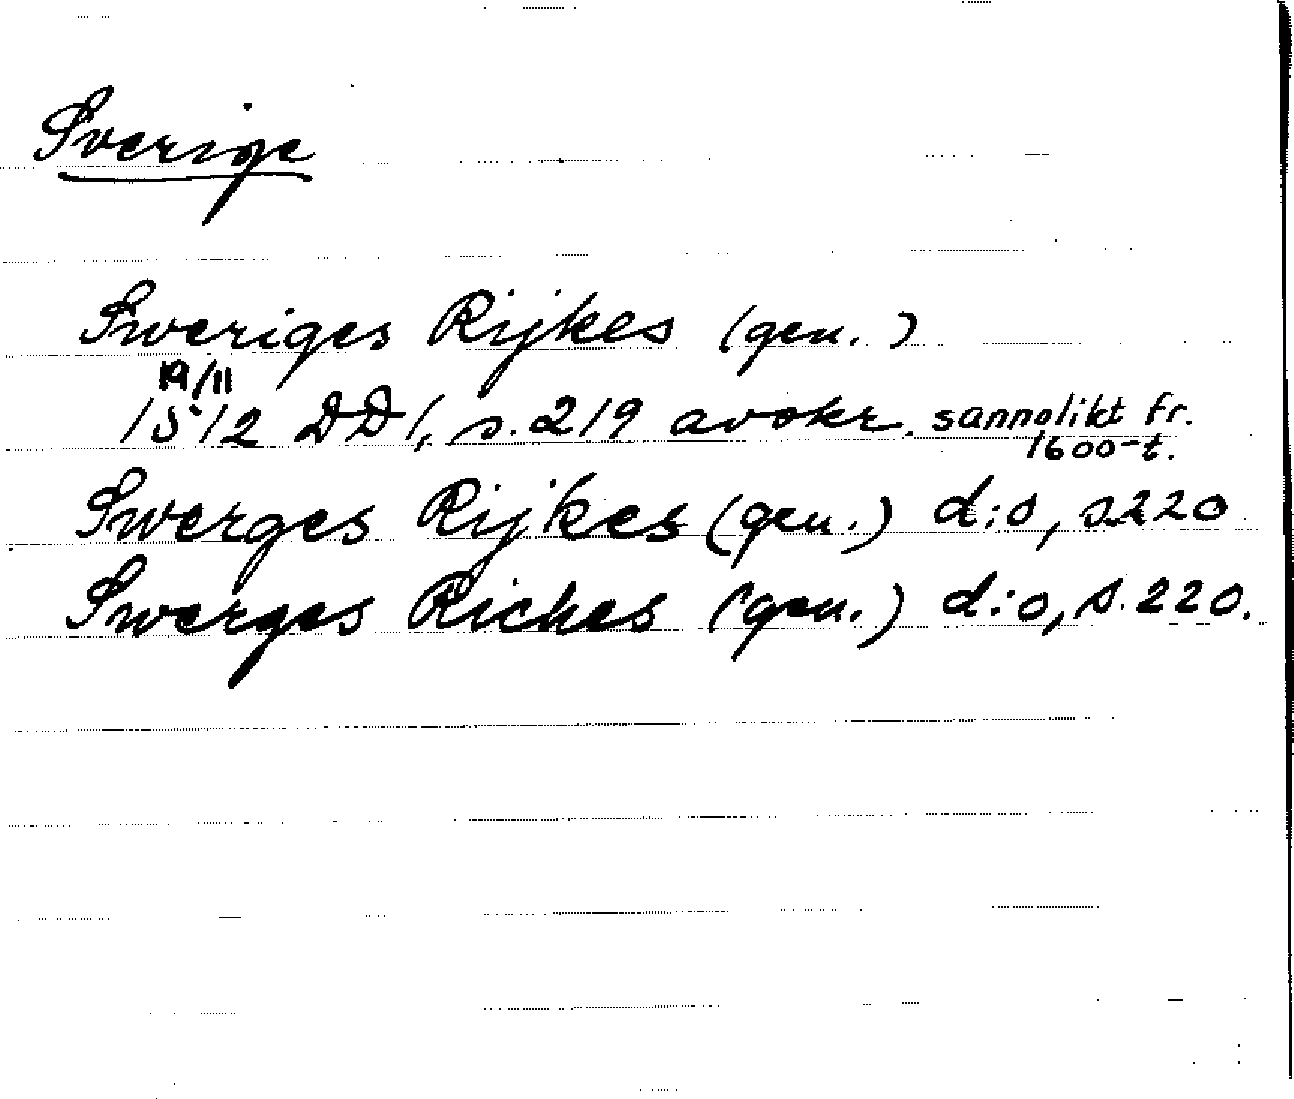 Sverige
Sweriges Rijkes (gen.)
19/11
1512 DD 1, s. 219 avskr. sannolikt fr.
1600-t.
Swerges Rijkes (gen.) d:o, s. 220
Swerges Riches (gen.) d:o, s. 220.